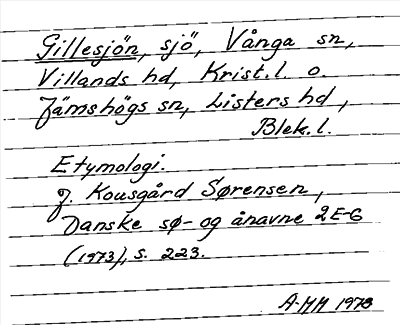 Gillesjön, sjö, Vånga sn,
Villands hd, Krist.l. o.
Jämshögs sn, Listers hd,
Blek.l.
Etymologi.
J. Kousgård Sørensen,
Danske sø- og ånavne 2 E-G
(1973), s. 223.
A-MH 1978